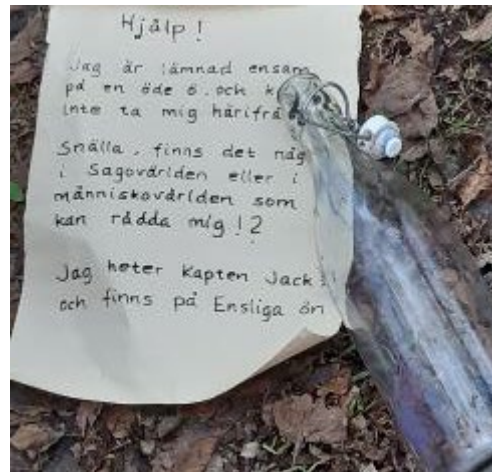 Hjälp!
Jag är lämnad ensam
på en öde ö. och
inte ta mig härifrå
Snälla, finns det någ
i Sagovärlden eller i
människovärlden som
kan rädda mig!?
Jag heter Kapten Jack
och finns på Ensliga ön